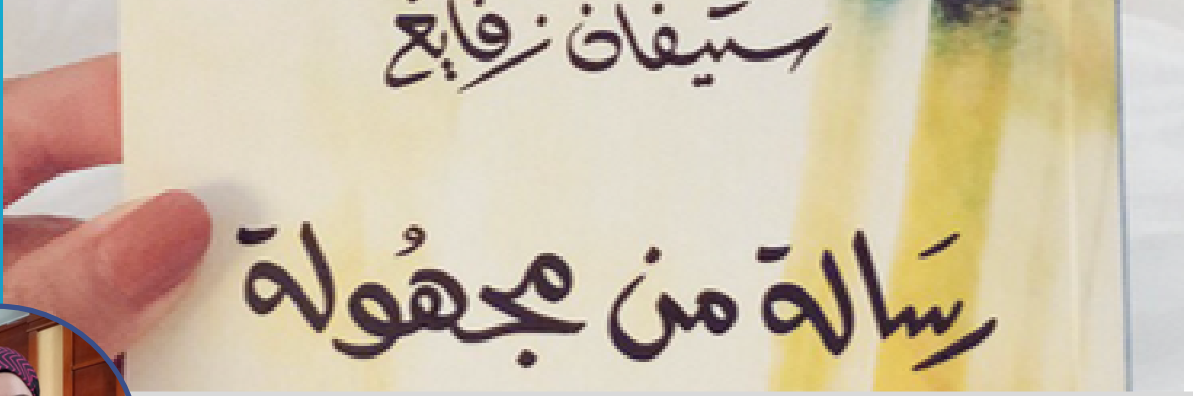 ستيفان زفايغ
رسالة من مجهولة